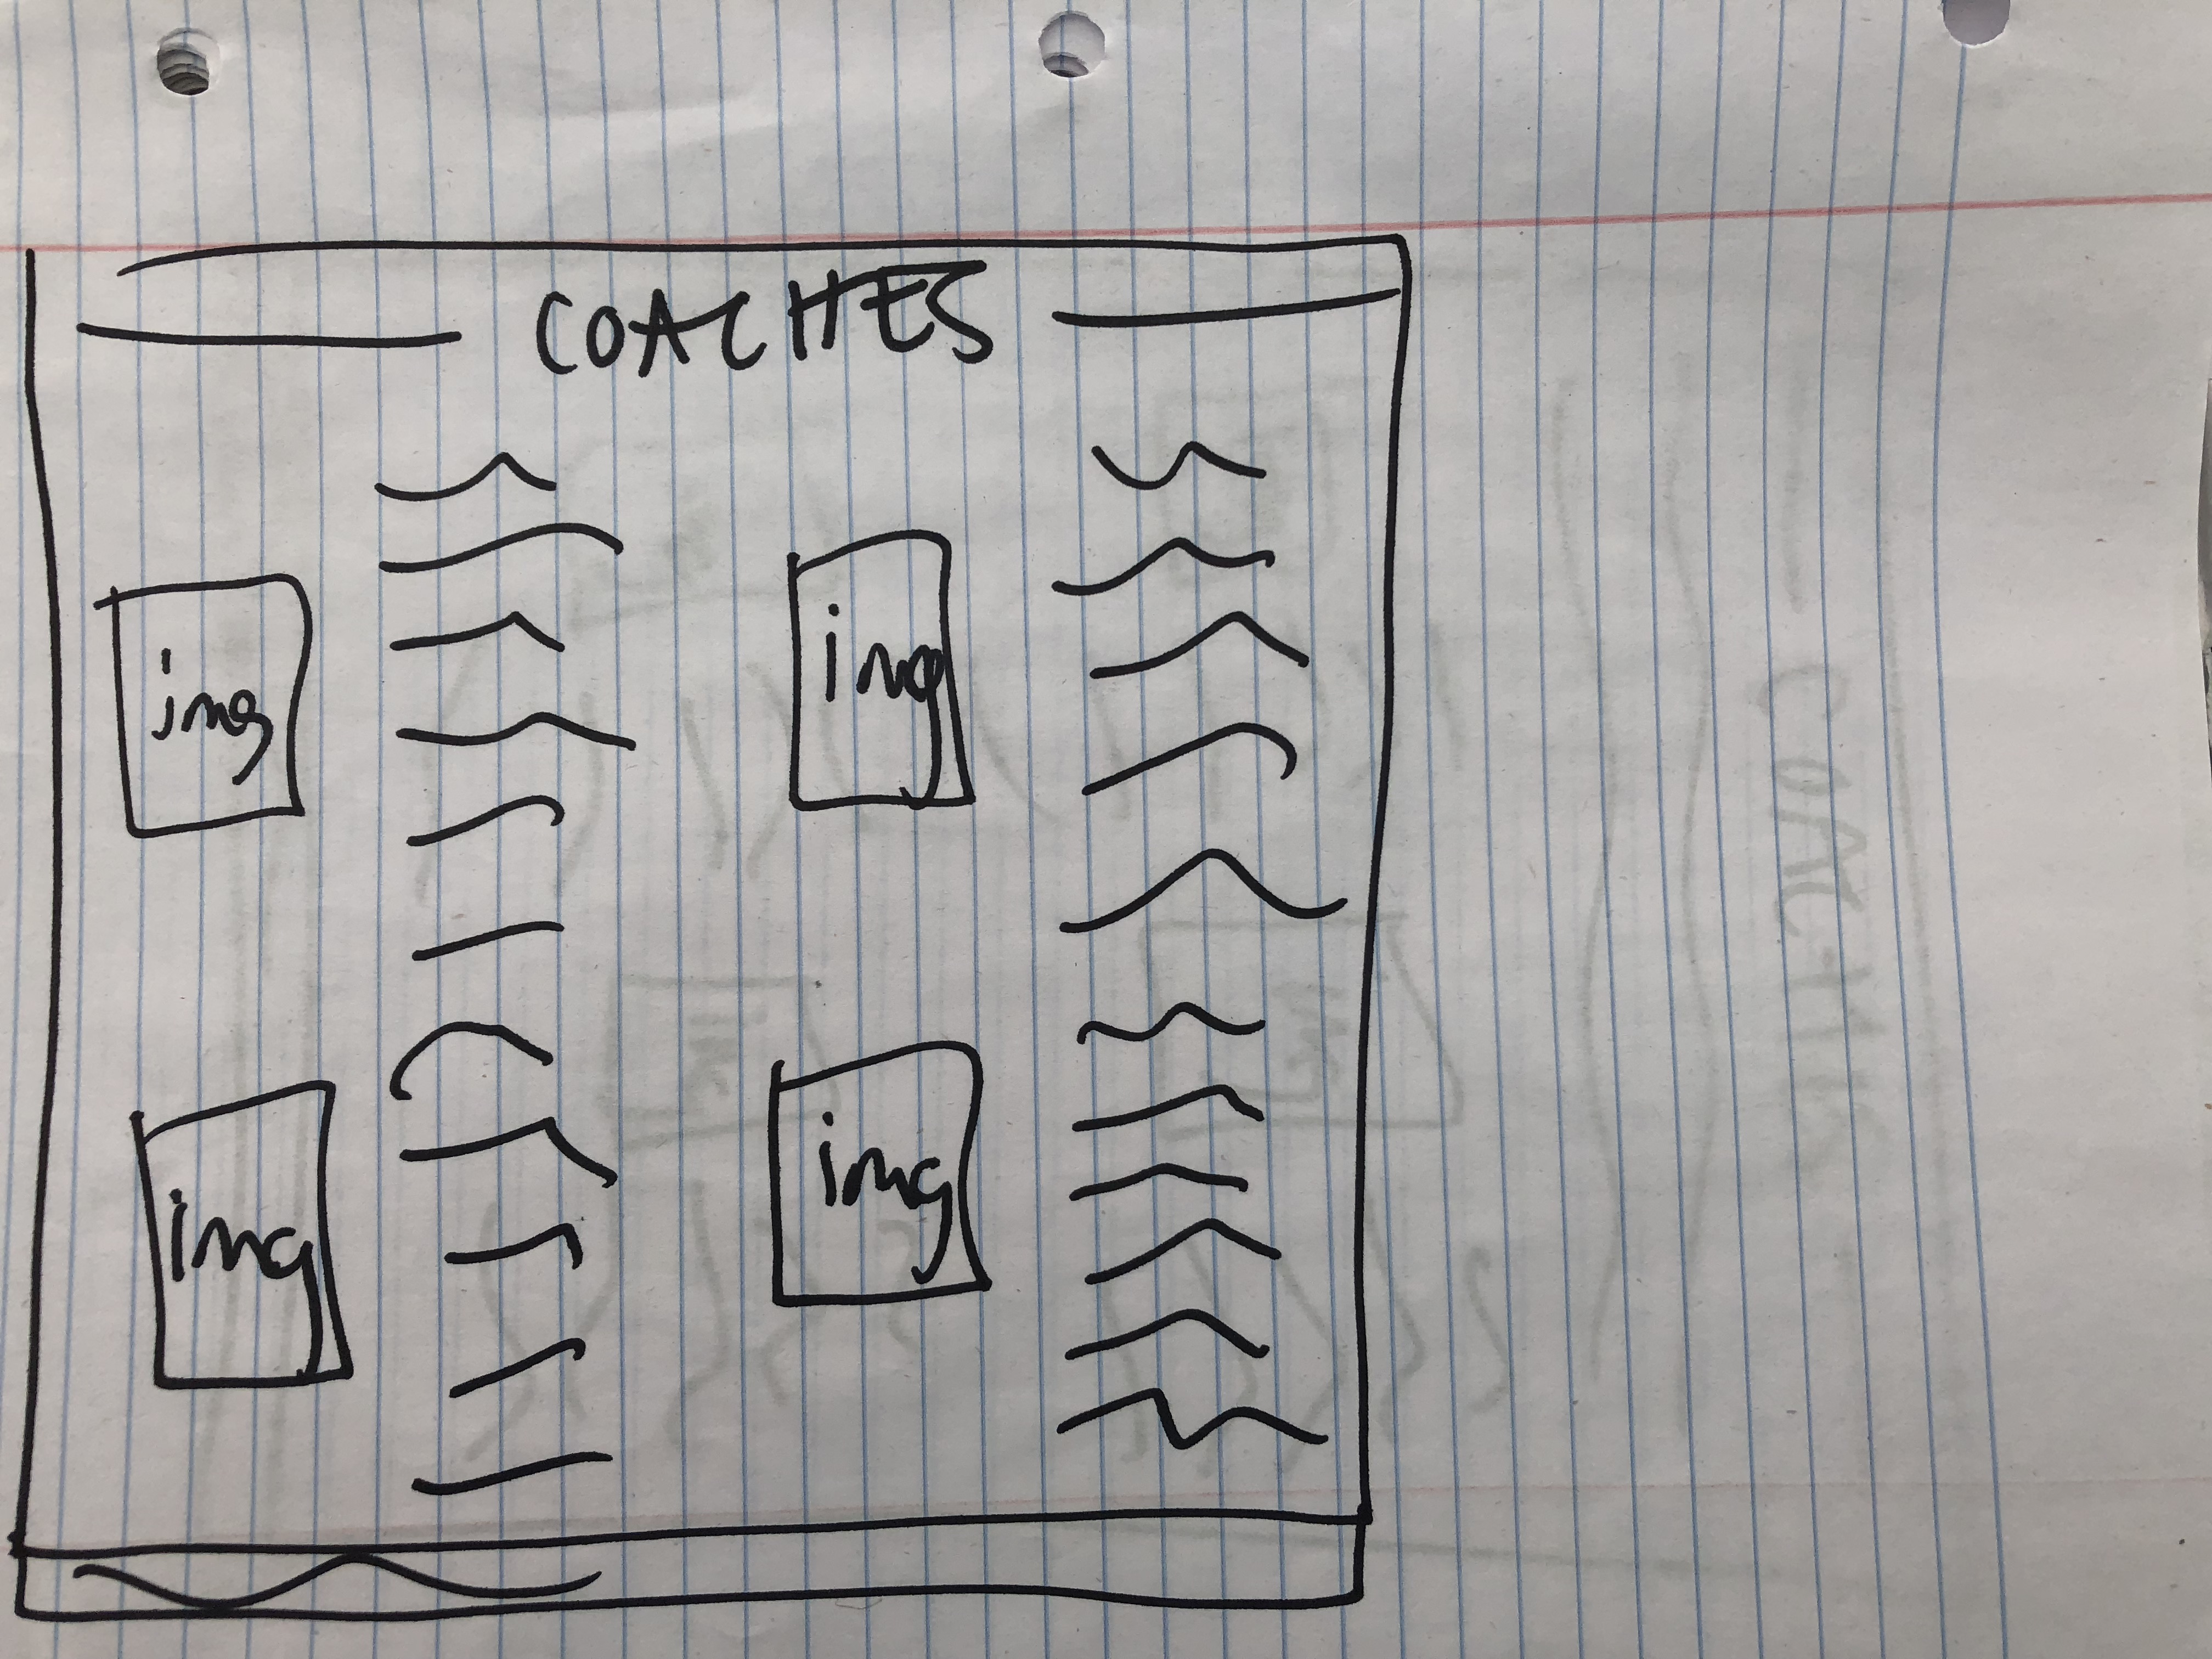 COACHES
img
img
img
img